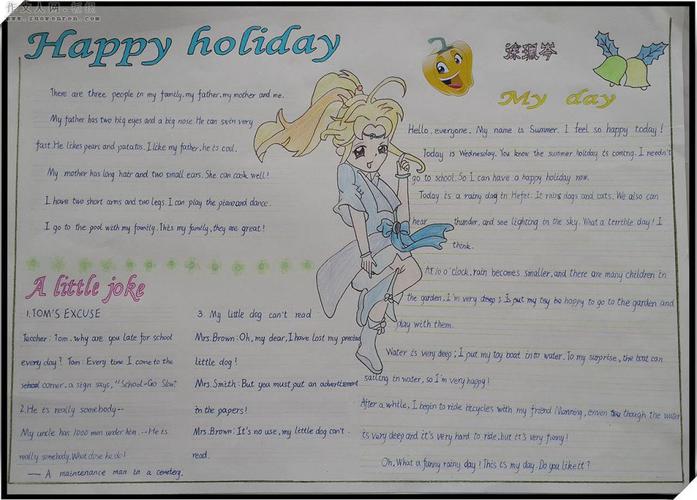 作文人网·福盛
www.zuowenren.com
Happy holiday
There are three people in my family, my father, my mother and me.
My father has two big eyes and a big nose. He can swin very
fast. He likes pears and patatos. I like my father, he is cool.
My mother has long hair and two small ears. She can cook well!
I have two short arms and two legs. I can play the piano and dance.
I go to the pool with my family. This my family, they are great!
A little joke
1. TOM'S EXCUSE
Teacher: Tom, why are you late for school
every day? Tom: Every time I come to the
school corner, a sign says, "School-Go Slow"
2. He is really somebody--
My uncle has 1000 men under him. --He is
really somebody. What dose he do?
— A maintenance man in a cemeterg.
3. My little dog can't read
Mrs. Brown: Oh, my dear, I have lost my precious
little dog!
Mrs. Smith: But you must put an advertisement
in the papers!
Mrs. Brown: It's no use, my little dog can't
read.
My day
Hello, everyone. My name is Summer. I feel so happy today!
Today is Wednesday. You know the summer holiday is coming. I needn't
go to school. So I can have a happy holiday now.
Today is a rainy dog in Hefei. It rains dogs and cats. We also can
hear thunder, and see lighting in the sky. What a terrible day! I
think.
At 10 o'clock, rain becomes smaller, and there are many children in
the garden. I'm very happy to go to the garden and
play with them.
Water is very deep; I put my toy boat into water. To my surprise, the boat can
sailing in water, so I'm very happy!
After a while, I begin to ride bicycles with my friend Manning, enven though the water
its very deep and it's very hard to ride, but it's very funny!
Oh, What a funny rainy day! This is my day. Do you like it?